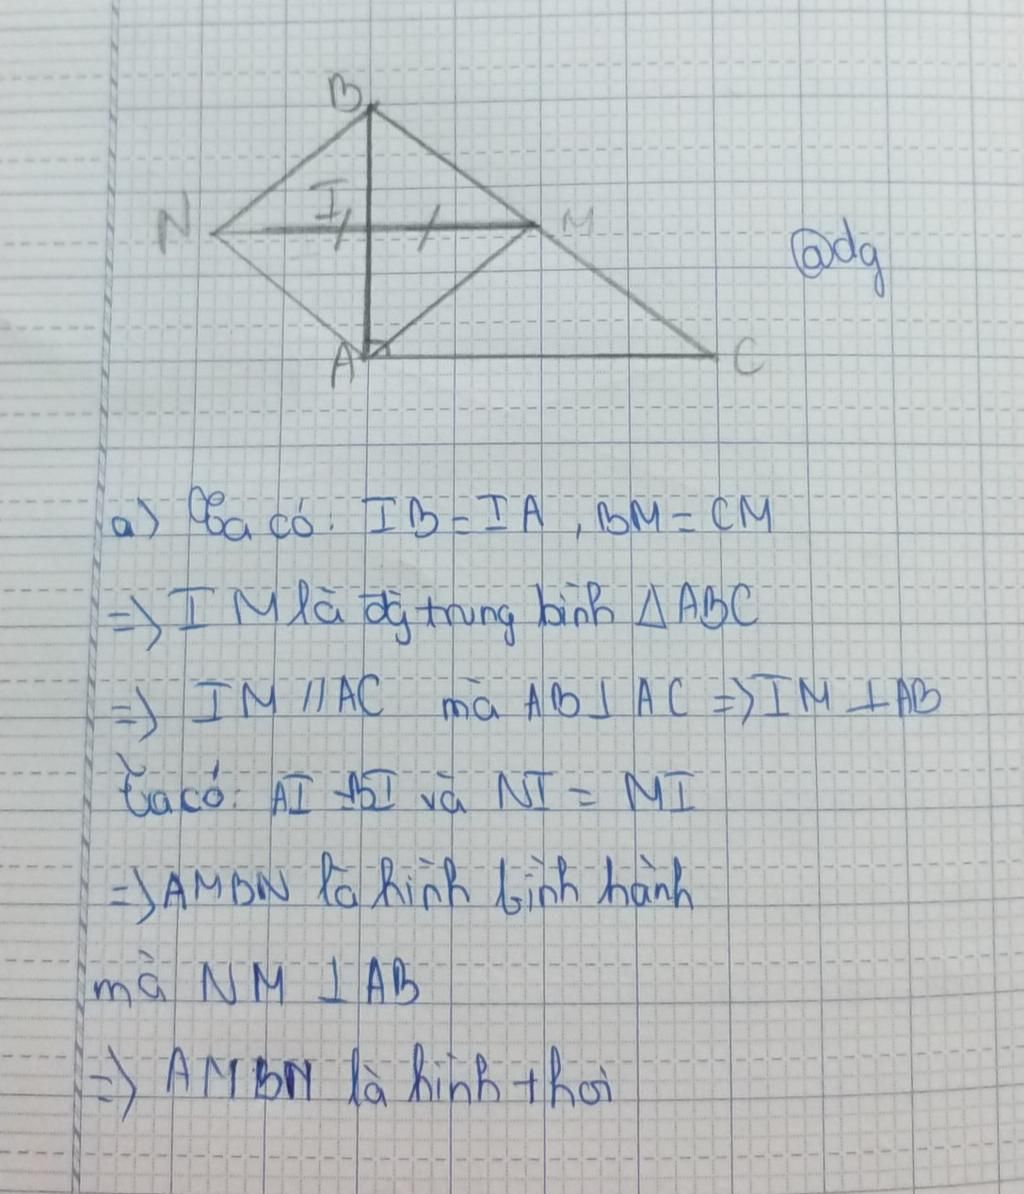 B
N
I
M
@dg
A
C
a) Ta có: IB = IA, BM = CM
=> IM là đg trung bình ΔABC
=> IM // AC mà AB ⊥ AC => IM ⊥ AB
Ta có: AI = BI và NI = MI
=> AMBN là hình bình hành
mà NM ⊥ AB
=> AMBN là hình thoi